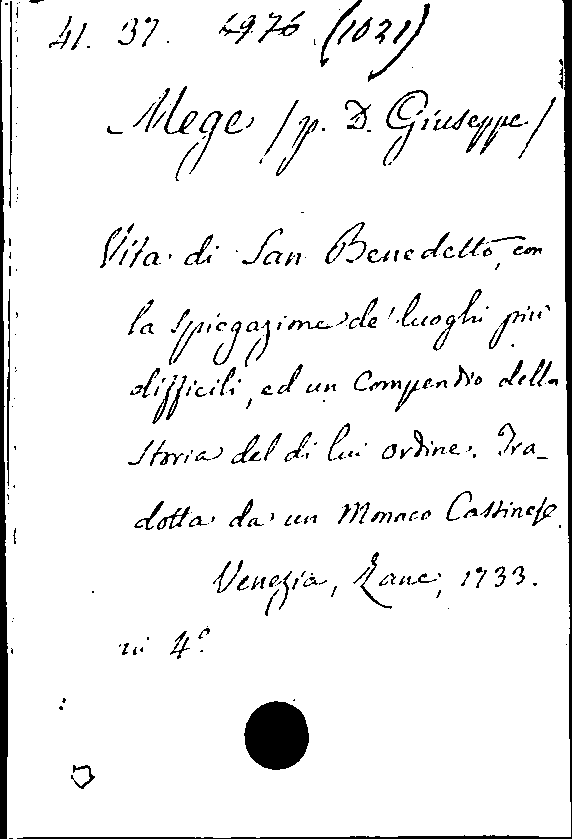 41. 37. 4976 (1021)
Mege /p. D. Giuseppe/
Vita di San Benedetto, con
la spiegazione de' luoghi più
difficili, ed un Compendio della
Storia del di lui ordine. Tra-
dotta da un Monaco Cassinese.
Venezia, Zane, 1733.
in 4º